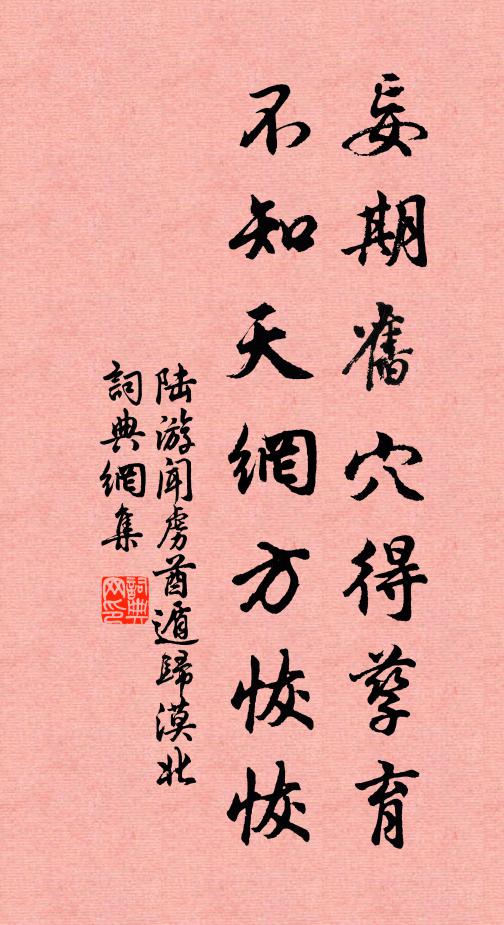 妄期舊穴得孳育
不知天網方恢恢
陆游闻虏酋遁歸漠北
詞典網集
詞典網印